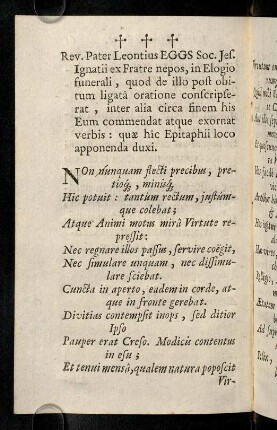 † † †
Rev. Pater Leontius EGGS Soc. Jeſ.
Ignatii ex Fratre nepos, in Elogio
funerali, quod de illo poſt obi-
tum ligatâ oratione conſcripſe-
rat, inter alia circa finem his
Eum commendat atque exornat
verbis: quæ hic Epitaphii loco
apponenda duxi.
NOn nunquam flecti precibus, pre-
tioq́, minisq́
Hic potuit: tantum rectum, juſtúm-
que colebat;
Atque Animi motus mirâ Virtute re-
preſſit:
Nec regnare illos paſſus, ſervire coëgit,
Nec ſimulare unquam, nec diſſimu-
lare ſciebat.
Cuncta in aperto, eadem in corde, at-
que in fronte gerebat.
Divitias contempſit inops, ſed ditior
Ipſo
Pauper erat Creſo. Modicùs contentus
in eſu;
Et tenui menſâ, qualem natura popoſcit
Vir-